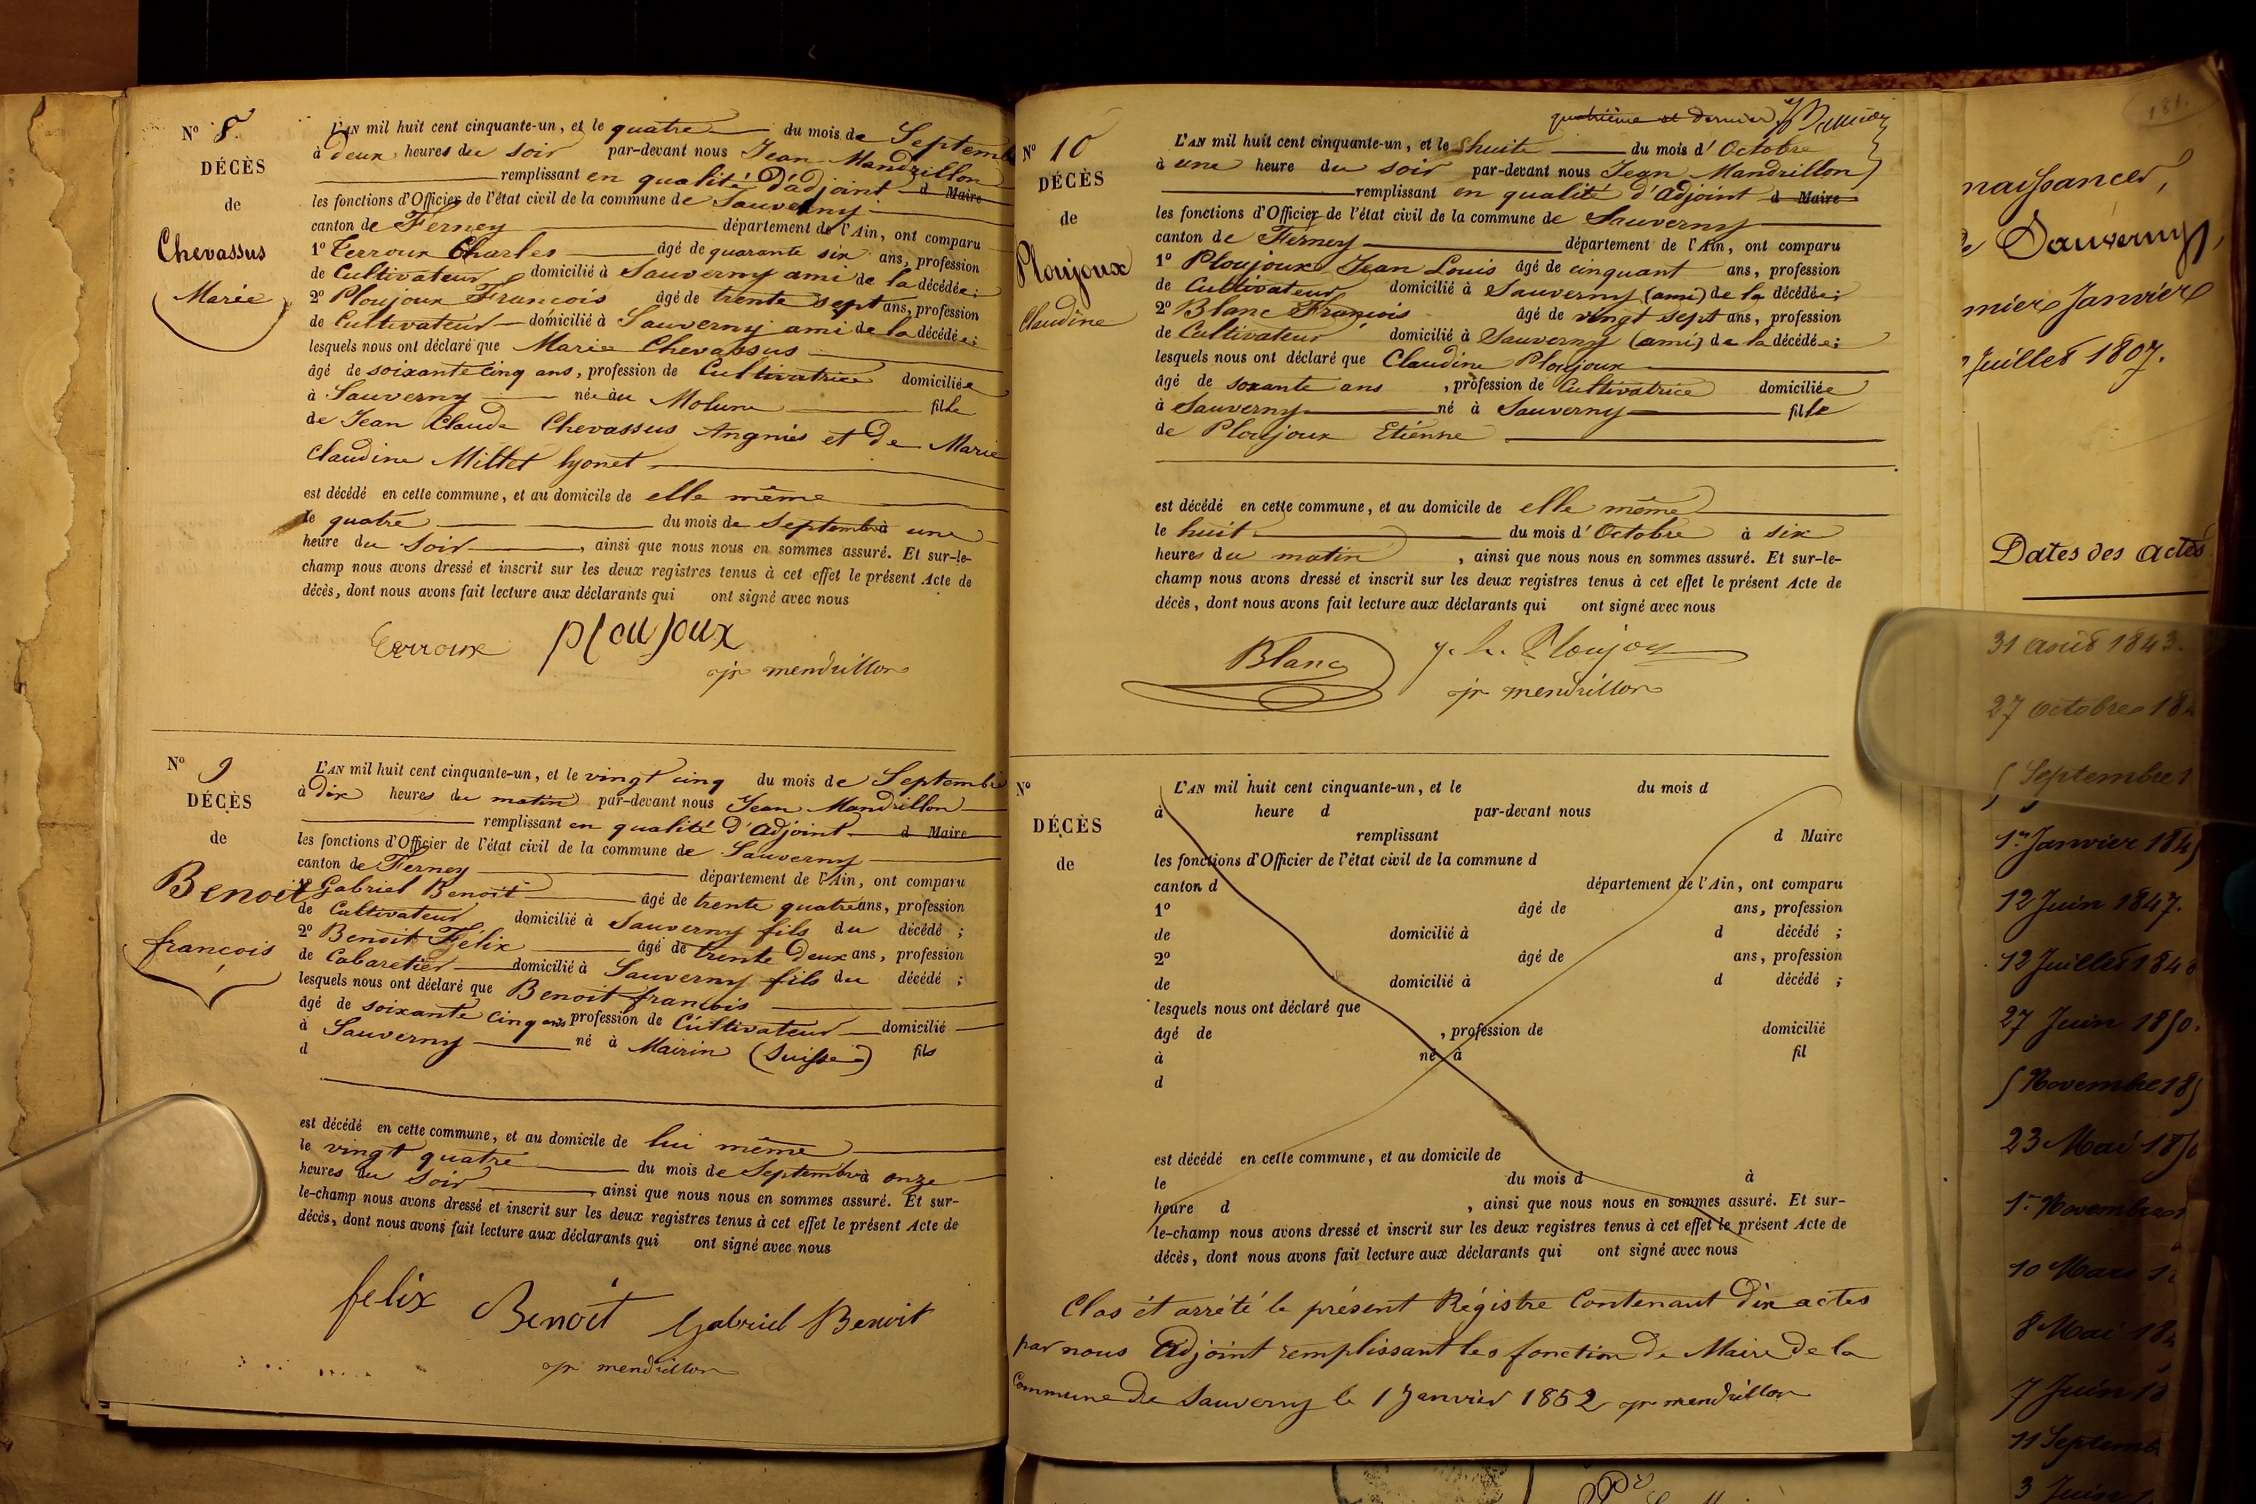 Nº 8.
DÉCÈS
de
Chevassus
Marie
L'AN mil huit cent cinquante-un, et le quatre du mois de Septemb
à deux heures du soir par-devant nous Jean Mandrillon
remplissant en qualité D'adjoint d Maire
les fonctions d'Officier de l'état civil de la commune de Sauverny
canton de Ferney département de l'Ain, ont comparu
1º Terroux Charles âgé de quarante six ans, profession
de Cultivateur domicilié à Sauverny ami de la décédée;
2º Ploujoux François âgé de trente sept ans, profession
de Cultivateur domicilié à Sauverny ami de la décédée;
lesquels nous ont déclaré que Marie Chevassus
âgé de soixante cinq ans, profession de Cultivatrice domiciliée
à Sauverny née au Molune fille
de Jean Claude Chevassus Angniés et de Marie
Claudine Millet lyonet
est décédé en cette commune, et au domicile de elle même
le quatre du mois de Septembre à une
heure du Soir, ainsi que nous nous en sommes assuré. Et sur-le-
champ nous avons dressé et inscrit sur les deux registres tenus à cet effet le présent Acte de
décès, dont nous avons fait lecture aux déclarants qui ont signé avec nous
Terroux Ploujoux
mendrillon
Nº 9
DÉCÈS
de
Benoit
françois
L'AN mil huit cent cinquante-un, et le vingt cinq du mois de Septembre
à dix heures du matin par-devant nous Jean Mandrillon
remplissant en qualité d'adjoint d Maire
les fonctions d'Officier de l'état civil de la commune de Sauverny
canton de Ferney département de l'Ain, ont comparu
1º Gabriel Benoit âgé de trente quatre ans, profession
de Cultivateur domicilié à Sauverny fils du décédé;
2º Benoit Félix âgé de trente Deux ans, profession
de Cabaretier domicilié à Sauverny fils du décédé;
lesquels nous ont déclaré que Benoit françois
âgé de soixante cinq ans profession de Cultivateur domicilié
à Sauverny né à Mairin (Suisse) fils
d
est décédé en cette commune, et au domicile de lui même
le vingt quatre du mois de Septembre à onze
heures du Soir, ainsi que nous nous en sommes assuré. Et sur-
le-champ nous avons dressé et inscrit sur les deux registres tenus à cet effet le présent Acte de
décès, dont nous avons fait lecture aux déclarants qui ont signé avec nous
felix Benoit Gabriel Benoit
mendrillon
quatrième et dernier
Nº 10
DÉCÈS
de
Ploujoux
Claudine
L'AN mil huit cent cinquante-un, et le huite du mois d'Octobre
à une heure du soir par-devant nous Jean Mandrillon
remplissant en qualité d'adjoint d Maire
les fonctions d'Officier de l'état civil de la commune de Sauverny
canton de Ferney département de l'Ain, ont comparu
1º Ploujoux Jean Louis âgé de cinquant ans, profession
de Cultivateur domicilié à Sauverny (ami) de la décédée;
2º Blanc François âgé de vingt sept ans, profession
de Cultivateur domicilié à Sauverny (ami) de la décédée;
lesquels nous ont déclaré que Claudine Ploujoux
âgé de soxante ans, profession de Cultivatrice domiciliée
à Sauverny né à Sauverny fille
de Ploujoux Etienne
est décédé en cette commune, et au domicile de elle même
le huit du mois d'Octobre à six
heures du matin, ainsi que nous nous en sommes assuré. Et sur-le-
champ nous avons dressé et inscrit sur les deux registres tenus à cet effet le présent Acte de
décès, dont nous avons fait lecture aux déclarants qui ont signé avec nous
Blanc J. L. Ploujoux
mendrillon
Nº
DÉCÈS
de
L'AN mil huit cent cinquante-un, et le du mois d
à heure d par-devant nous
remplissant d Maire
les fonctions d'Officier de l'état civil de la commune d
canton d département de l'Ain, ont comparu
1º âgé de ans, profession
de domicilié à d décédé ;
2º âgé de ans, profession
de domicilié à d décédé ;
lesquels nous ont déclaré que
âgé de , profession de domicilié
à né à fil
d
est décédé en cette commune, et au domicile de
le du mois d à
heure d , ainsi que nous nous en sommes assuré. Et sur-
le-champ nous avons dressé et inscrit sur les deux registres tenus à cet effet le présent Acte de
décès, dont nous avons fait lecture aux déclarants qui ont signé avec nous
Clos et arrété le présent Régistre Contenant Dix actes
par nous Adjoint remplissant les fonction de Maire de la
Commune de Sauverny le 1 Janvier 1852 mendrillon
181.
naissances,
de Sauverny,
mier Janvier
Juillet 1807.
Dates des actes
31 août 1843.
27 octobre 18
5 Septembre 1
1er Janvier 184
12 Juin 1847.
12 Juillet 184
27 Juin 1850.
5 Novembre 18
23 Mai 18
1er Novembre
10 Mars 1
8 Mai 18
7 Juin 1
11 Septemb
3 Juin